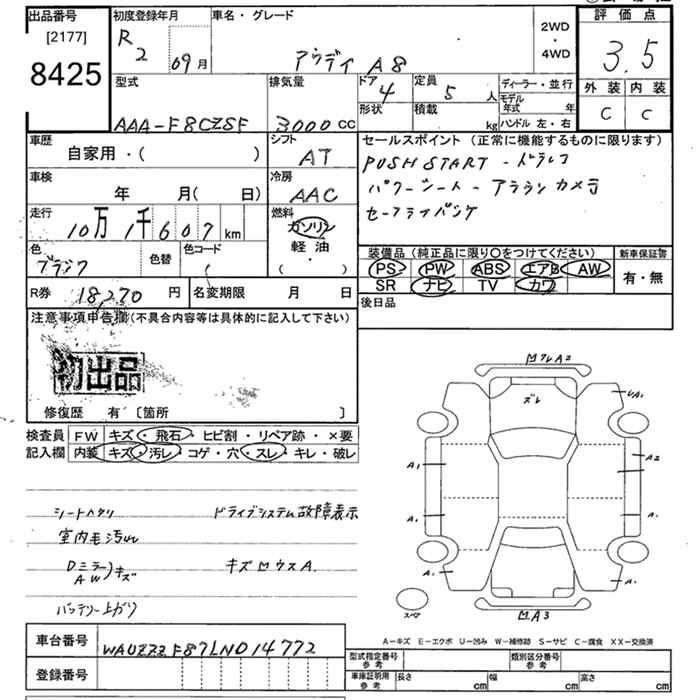 出品番号
[2177]
8425
初度登録年月
R2 09月
車名・グレード
アウディ A8
2WD
・
4WD
評価点
3.5
外装 内装
C C
型式
AAA-F8CZSF
排気量
3000cc
ドア
4
形状
定員
5人
積載
kg
ディーラー・並行
モデル年式 年
ハンドル 左・右
車歴
自家用・( )
シフト
AT
車検
年 月( 日)
冷房
AAC
走行
10万1千607km
燃料
ガソリン
軽油
( ・ )
色
ブラック
色替
色コード
( )
R券 18,270円
名変期限 月 日
セールスポイント (正常に機能するものに限ります)
PUSH START - ドラレコ
パワーシート - アラウンカメラ
装備品 (純正品に限り○をつけてください)
PS PW ABS エアB AW
SR ナビ TV カワ
新車保証書
有・無
後日品
注意事項申告欄(不具合内容等は具体的に記入して下さい)
初出品
修復歴 有 [箇所 ]
検査員記入欄
FW キズ・飛石・ヒビ割・リペア跡・×要
内装 キズ・汚レ・コゲ・穴・スレ・キレ・破レ
シートヘタリ ドライブシステム故障表示
室内毛汚レ
Dミラー AW)キズ キズ凹ウスA.
バッテリー上がり
凹クレA2
ズレ
A1
A2
A.
A.
A.
A.
スペア
凹A3
A−キズ E−エクボ U−凹み W−補修跡 S−サビ C−腐食 XX−交換済
車台番号 WAUZZZF87LN014772
登録番号
型式指定番号 参考
類別区分番号 参考
車庫証明用 参考
長さ cm 幅 cm 高さ cm